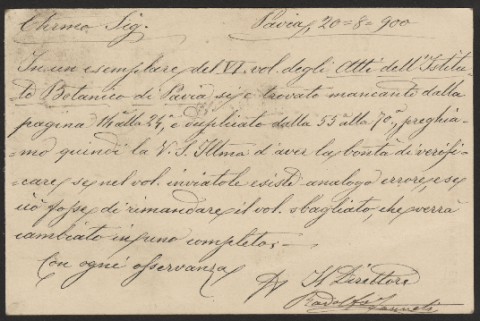 Chrmo Sig.
Pavia, 20=8=900
In un esemplare del VI. vol. degli Atti dell'Istitu-
to Botanico di Pavia si è trovato mancante dalla
pagina alla 24a, e duplicato dalla 55a alla 70a, preghia-
=mo quindi la V. S. Illma d'aver la bontà di verifi-
=care se nel vol. inviatole esiste analogo errore, e se
ciò fosse di rimandare il vol. sbagliato, che verrà
cambiato in uno completo.—
Con ogni osservanza
Il Direttore
Rodolfo